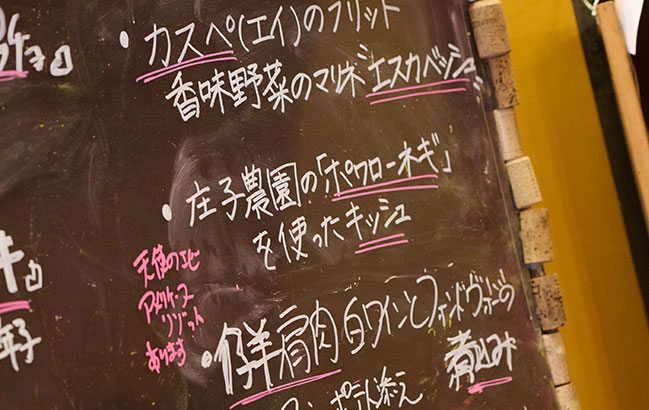 ・カスペ(エイ)のフリット
香味野菜のマリネ エスカベッシュ
・庄子農園の「ポワローネギ」
を使ったキッシュ
天使のエビ
アメリケーヌ
リゾット
あります
・仔羊肩肉 白ワインとフォンドヴォーの
煮込み
ポテト添え